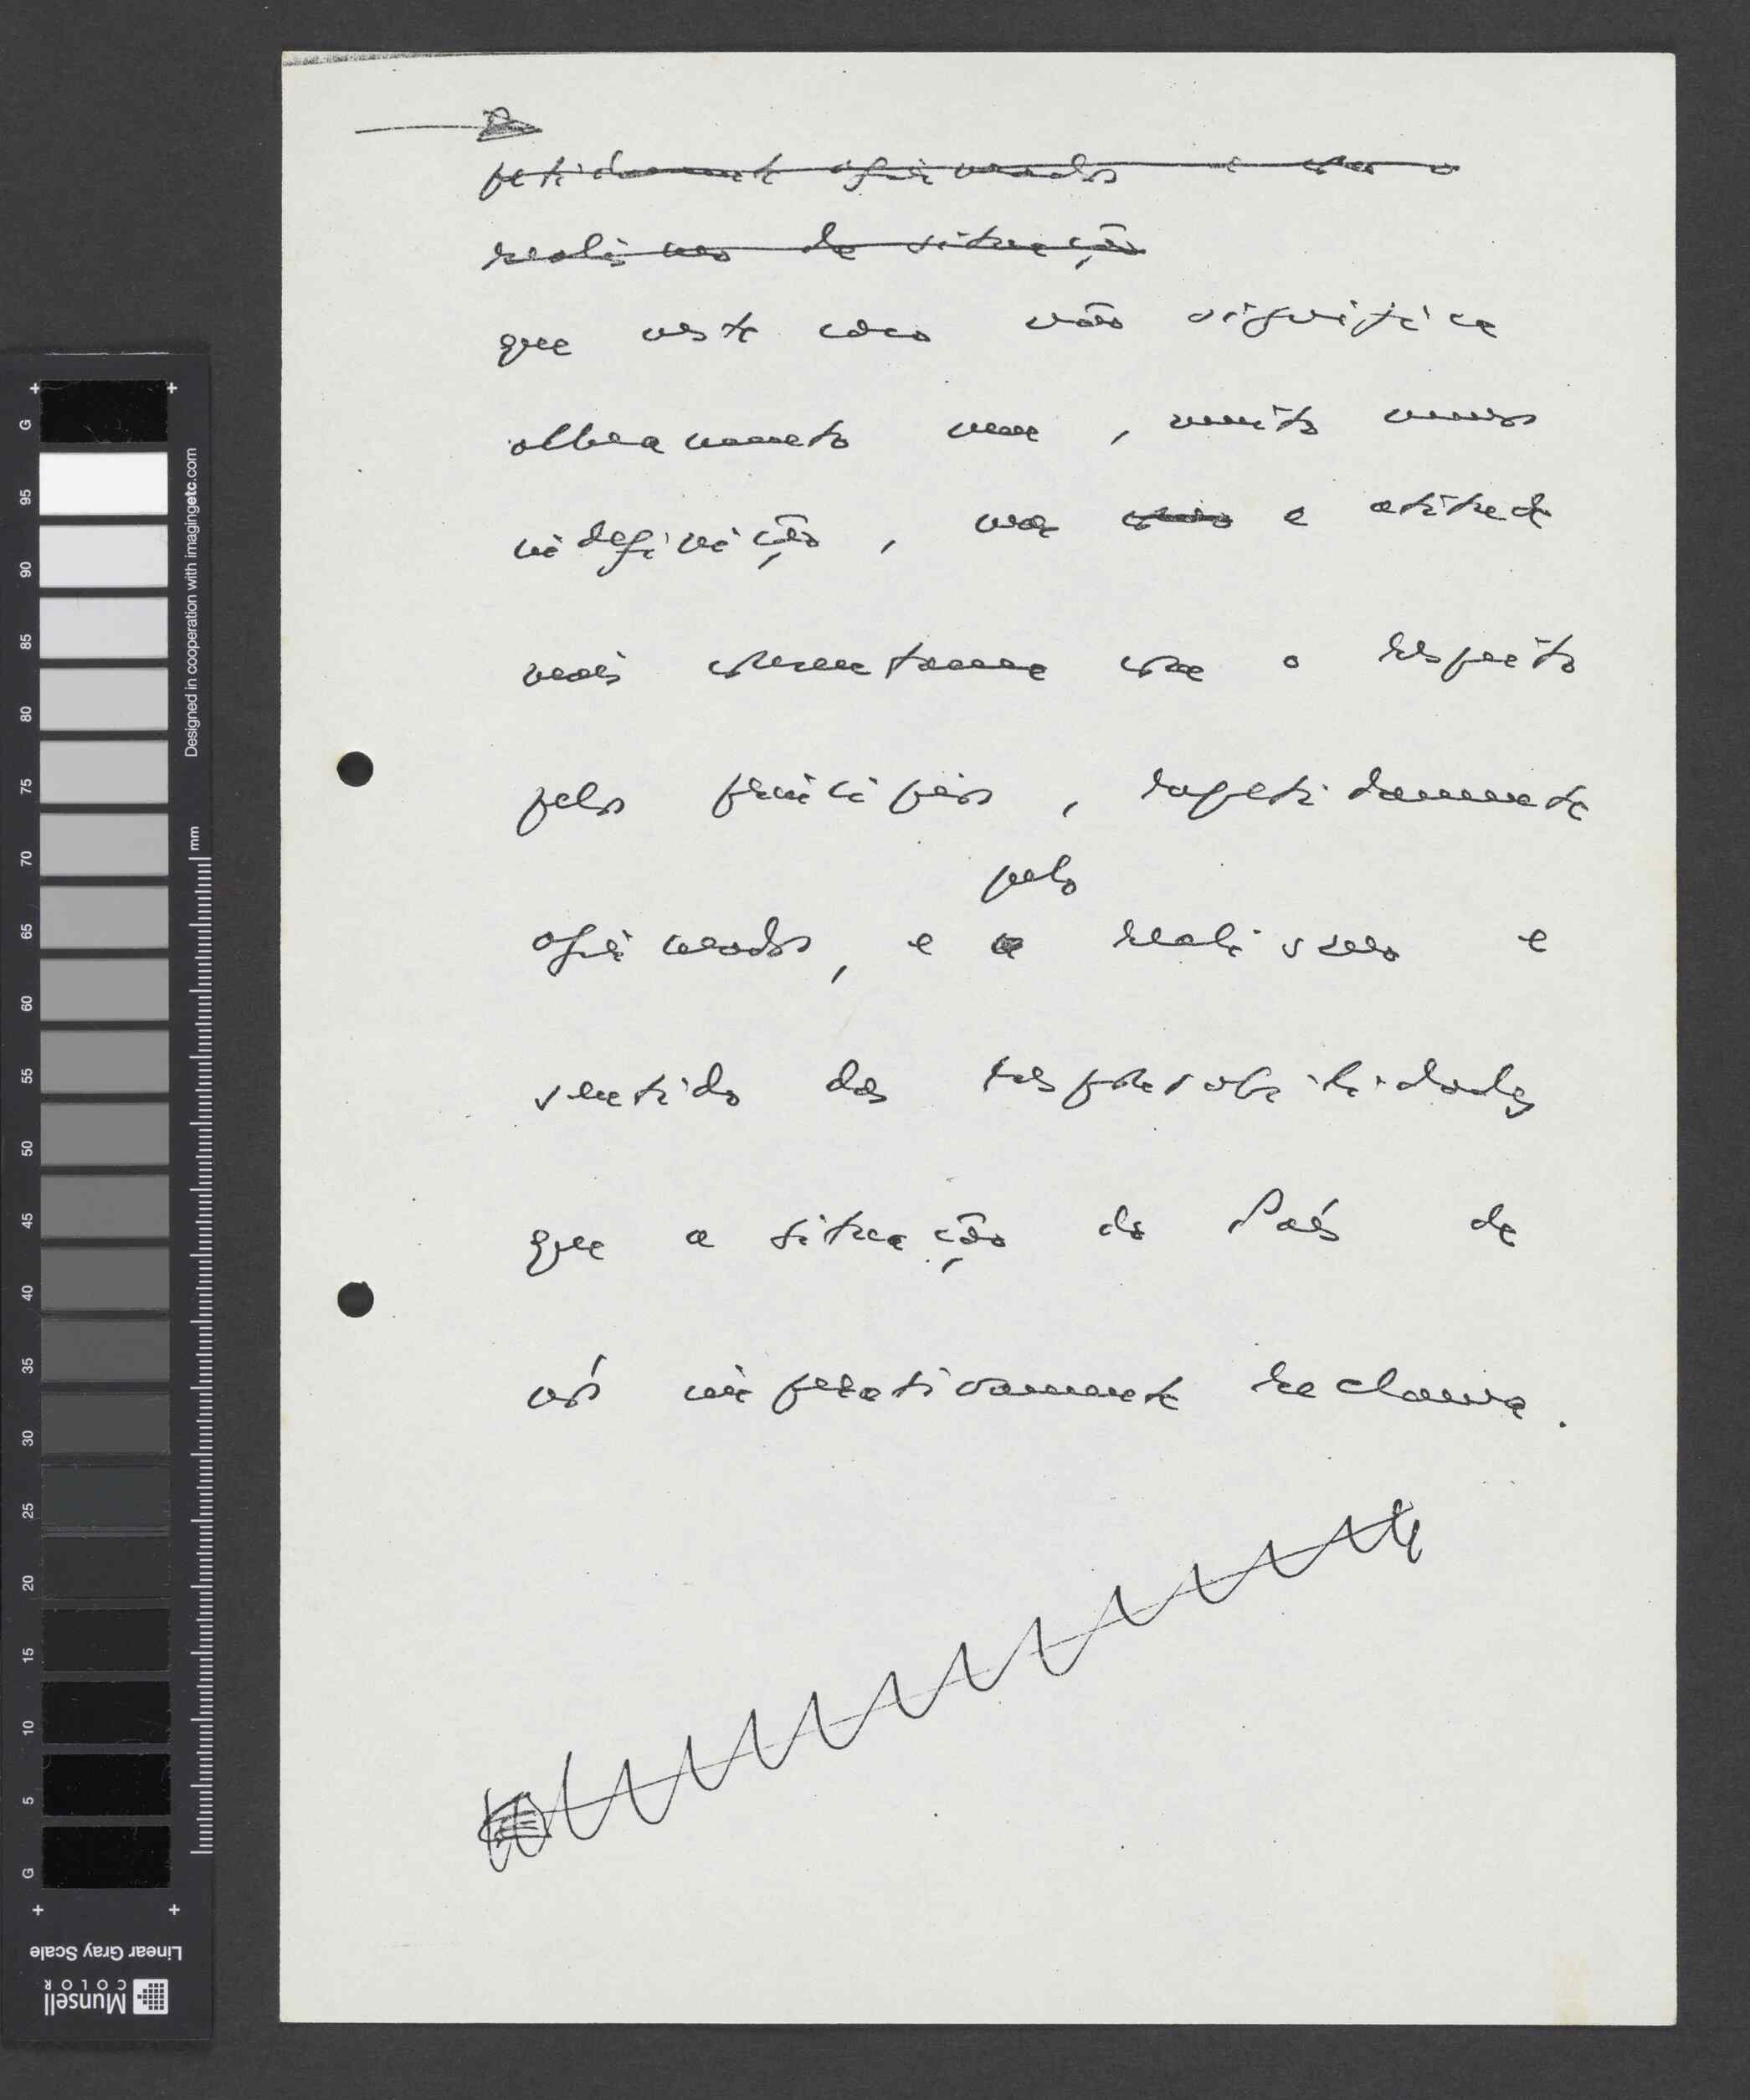 petidamente afirmados e com o
realismo da situação
que neste caso não significa
alheamento nem, muito menos
indefinição, mas a atitude
mais consentanea com o respeito
pelos princípios, repetidamente
pelo
afirmados, e realismo e
sentido das responsabilidades
que a situação do País de
nós imperativamente reclama.
G 95 90 85 80 75 70 65 60 55 50 45 40 35 30 25 20 15 10 5 G
Designed in cooperation with imagingetc.com
mm
Linear Gray Scale
Munsell
COLOR